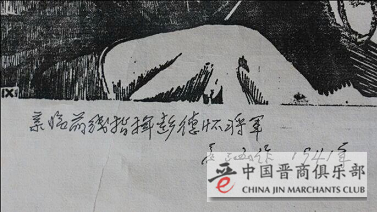 亲临前线指挥彭德怀将军
1941年
中国晋商俱乐部
CHINA JIN MARCHANTS CLUB